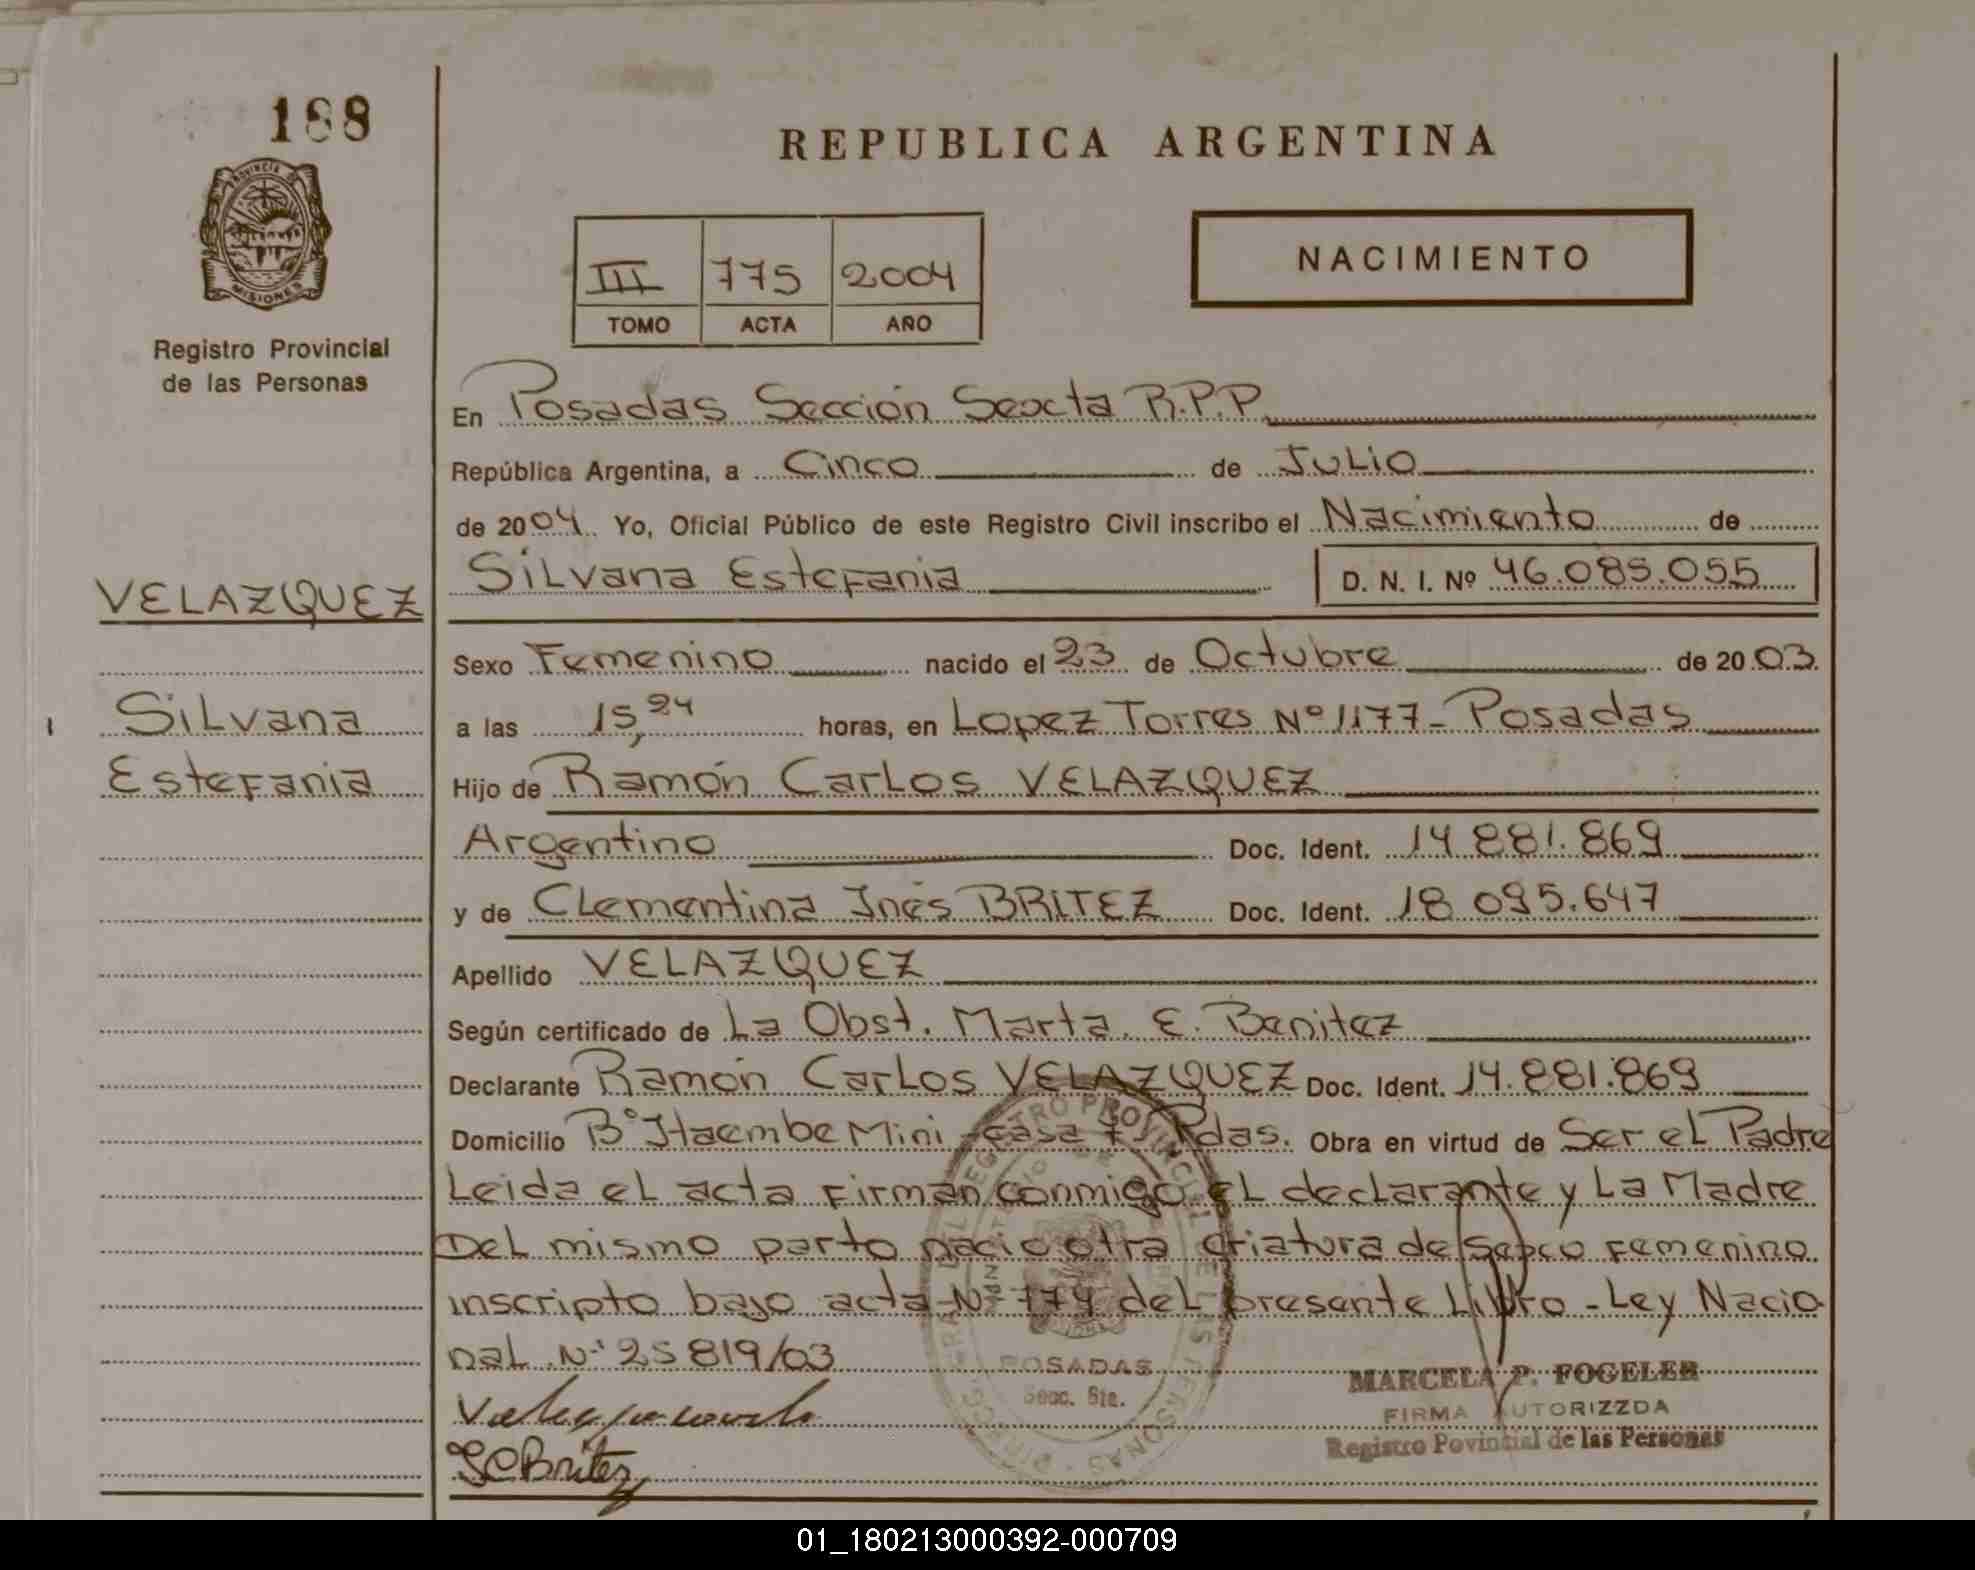 188
PROVINCIA DE
MISIONES
Registro Provincial
de las Personas
VELAZQUEZ
Silvana
Estefania
REPUBLICA ARGENTINA
III 775 2004
TOMO ACTA AÑO
NACIMIENTO
En Posadas Sección Sexta R.P.P.
República Argentina, a Cinco de Julio
de 2004. Yo, Oficial Público de este Registro Civil inscribo el Nacimiento de
Silvana Estefania D. N. I. Nº 46.085.055
Sexo Femenino nacido el 23 de Octubre de 2003.
a las 15,24 horas, en Lopez Torres Nº 1177- Posadas
Hijo de Ramón Carlos VELAZQUEZ
Argentino Doc. Ident. 14.881.869
y de Clementina Inés BRITEZ Doc. Ident. 18.095.647
Apellido VELAZQUEZ
Según certificado de La Obst. Marta. E. Benitez
Declarante Ramón Carlos VELAZQUEZ Doc. Ident. 14.881.869
Domicilio Bº Itaembe Mini casa Pdas. Obra en virtud de Ser el Padre
Leida el acta firman conmigo el declarante y La Madre
Del mismo parto nacio otra criatura de sexo femenino
inscripto bajo acta Nº 774 del presente Libro - Ley Nacio
nal Nº 25819/03
POSADAS
Secc. 6ta.
I C Britez
MARCELA P. FOGELER
FIRMA AUTORIZZDA
Registro Povincial de las Personas
01_180213000392-000709